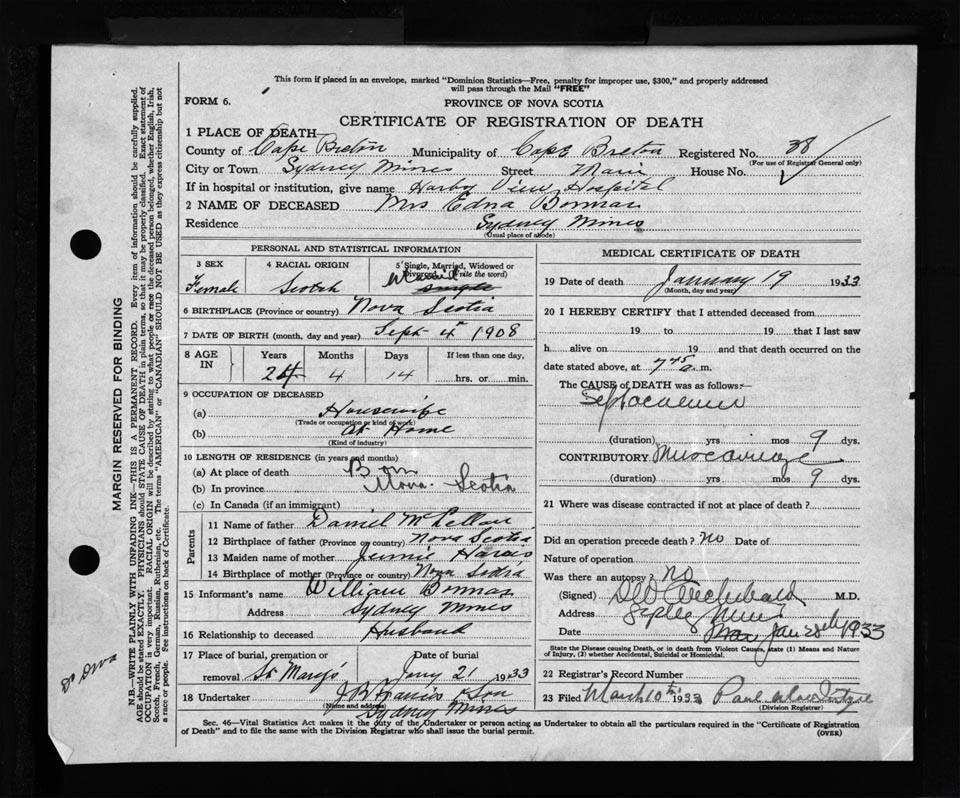 This form if placed in an envelope, marked "Dominion Statistics—Free, penalty for improper use, $300," and properly addressed
will pass through the Mail "FREE"
FORM 6.
PROVINCE OF NOVA SCOTIA
CERTIFICATE OF REGISTRATION OF DEATH
1 PLACE OF DEATH—
County of Cape Breton Municipality of Cape Breton Registered No. 38
(For use of Registrar General only)
City or Town Sydney Mines Street Main House No.
If in hospital or institution, give name Harbor View Hospital
2 NAME OF DECEASED Mrs Edna Bonnar
Residence Sydney Mines
(Usual place of abode)
PERSONAL AND STATISTICAL INFORMATION
3 SEX 4 RACIAL ORIGIN 5 Single, Married, Widowed or
Divorced (Write the word)
Female Scotch Married single
6 BIRTHPLACE (Province or country) Nova Scotia
7 DATE OF BIRTH (month, day and year) Sept 4th 1908
8 AGE IN Years Months Days If less than one day,
24 4 14 hrs. or min.
9 OCCUPATION OF DECEASED
(a) Housewife
(Trade or occupation or kind of work)
(b) At Home
(Kind of industry)
10 LENGTH OF RESIDENCE (in years and months)
(a) At place of death Born
(b) In province Nova Scotia
(c) In Canada (if an immigrant)
Parents
11 Name of father Daniel McLellan
12 Birthplace of father (Province or country) Nova Scotia
13 Maiden name of mother Jennie
14 Birthplace of mother (Province or country) Nova Scotia
15 Informant's name William Bonnar
Address Sydney Mines
16 Relationship to deceased Husband
17 Place of burial, cremation or Date of burial
removal St Mary's Jany 21 1933
18 Undertaker J.B. Francis & Son
(Name and address)
Sydney Mines
MEDICAL CERTIFICATE OF DEATH
19 Date of death January 19 1933
(Month, day and year)
20 I HEREBY CERTIFY that I attended deceased from
19 to 19 that I last saw
h alive on 19 and that death occurred on the
date stated above, at 7 45 a. m.
The CAUSE of DEATH was as follows:—
Septicaemia
(duration) yrs mos 9 dys.
CONTRIBUTORY Miscarriage
(duration) yrs mos 9 dys.
21 Where was disease contracted if not at place of death?
Did an operation precede death? no Date of
Nature of operation
Was there an autopsy? no
(Signed) Archibald M.D.
Address Sydney Mines
Date Jan 1933
State the Disease causing Death, or in death from Violent Causes, state (1) Means and Nature
of Injury, (2) whether Accidental, Suicidal or Homicidal.
22 Registrar's Record Number
23 Filed March 10th 1933
(Division Registrar)
Sec. 46—Vital Statistics Act makes it the duty of the Undertaker or person acting as Undertaker to obtain all the particulars required in the "Certificate of Registration
of Death" and to file the same with the Division Registrar who shall issue the burial permit.
(OVER)
MARGIN RESERVED FOR BINDING
N.B.—WRITE PLAINLY WITH UNFADING INK—THIS IS A PERMANENT RECORD. Every item of information should be carefully supplied.
AGE should be stated EXACTLY. PHYSICIANS should STATE CAUSE OF DEATH in plain terms, so that it may be properly classified. Exact statement of
OCCUPATION is very important. RACIAL ORIGIN will be described by stating to what people or race the deceased person belonged, whether English, Irish,
Scotch, French, German, Russian, Ruthenian, etc. The terms "AMERICAN" or "CANADIAN" SHOULD NOT BE USED as they express citizenship but not
a race or people. See instructions on back of Certificate.